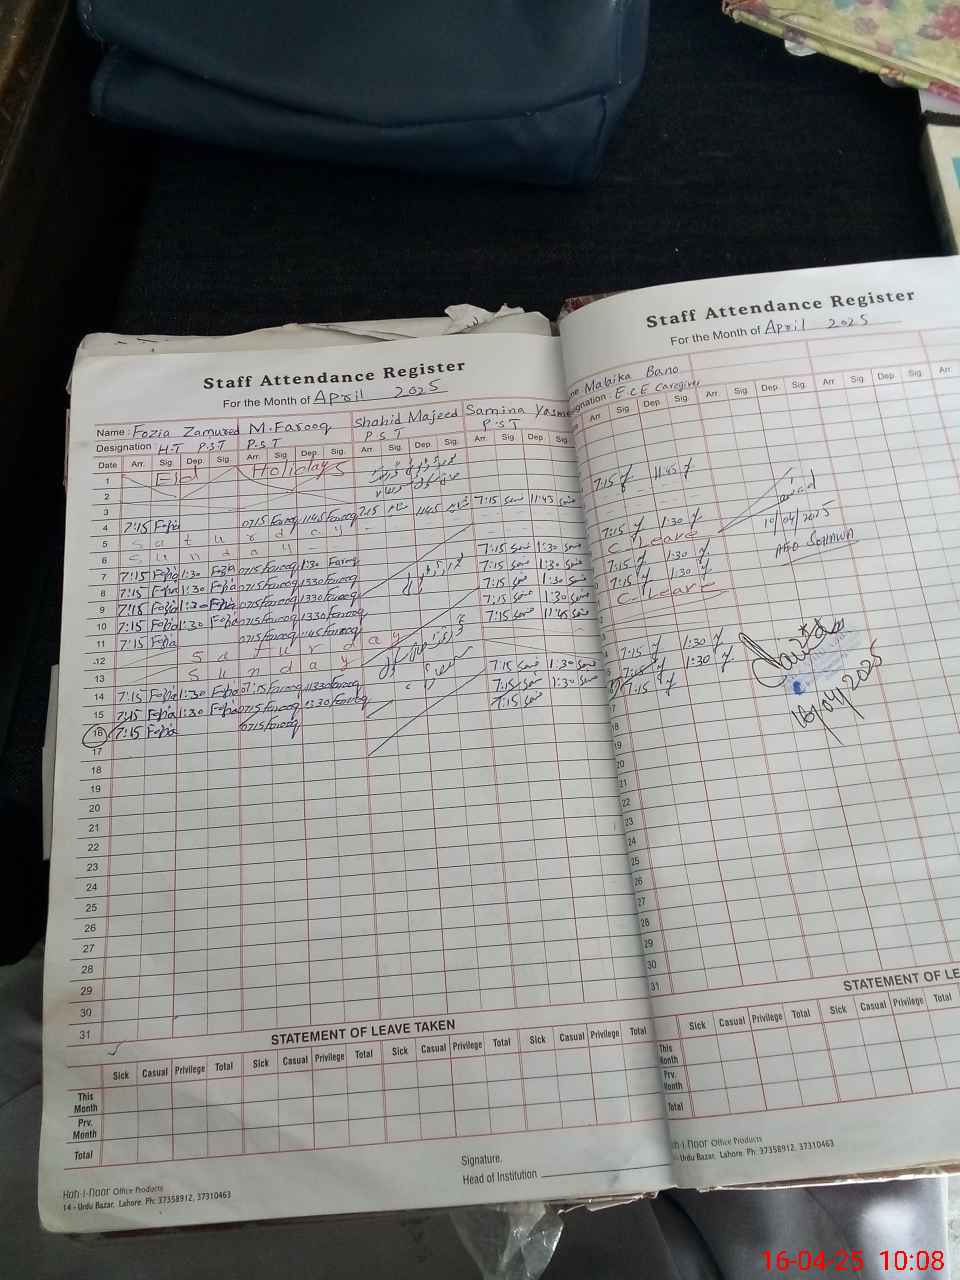 Staff Attendance Register
For the Month of April 2025
Name: Fozia Zamured M. Farooq Shahid Majeed Samina Yasme
Designation H.T P.S.T P.S.T P.S.T P.S.T
Date Arr. Sig. Dep. Sig. Arr. Sig. Dep. Sig. Arr. Sig. Dep. Sig. Arr. Sig. Dep. Sig.
1 Eid Holidays
2
3
4 7:15 Fozia 0715 Farooq 1145 Farooq 7:15 1145 7:15 11:45
5 Saturday
6 Sunday
7 7:15 Fozia 1:30 Fozia 0715 Farooq 1:30 Farooq 7:15 1:30
8 7:15 Fozia 1:30 Fozia 0715 Farooq 1330 Farooq 7:15 1:30
9 7:15 Fozia 1:30 Fozia 0715 Farooq 1330 Farooq 7:15 1:30
10 7:15 Fozia 1:30 Fozia 0715 Farooq 1330 Farooq 7:15 1:30
11 7:15 Fozia 0715 Farooq 1145 Farooq 7:15 11:45
12 Saturday
13 Sunday
14 7:15 Fozia 1:30 Fozia 07:15 Farooq 1330 Farooq 7:15 1:30
15 7:15 Fozia 1:30 Fozia 0715 Farooq 1330 Farooq 7:15 1:30
16 7:15 Fozia 0715 Farooq 7:15
17
18
19
20
21
22
23
24
25
26
27
28
29
30
31
STATEMENT OF LEAVE TAKEN
Sick Casual Privilege Total Sick Casual Privilege Total Sick Casual Privilege Total Sick Casual Privilege Total
This Month
Prv. Month
Total
Signature.
Head of Institution
Koh-i-Noor Office Products
14 - Urdu Bazar, Lahore. Ph: 37358912, 37310463
Staff Attendance Register
For the Month of April 2025
me Malaika Bano
signation: E.C.E Caregiver
Arr. Sig. Dep. Sig. Arr. Sig. Dep. Sig. Arr.
7:15 11:45
7:15 1:30
C. Leave
7:15 1:30
7:15 1:30
C. Leave
10/04/2025
AEO SOHAWA
7:15 1:30
7:15 1:30
7:15
16/04/2025
17
18
19
20
21
22
23
24
25
26
27
28
29
30
31
STATEMENT OF LE
Sick Casual Privilege Total Sick Casual Privilege Total
This Month
Prv. Month
Total
oh-i-Noor Office Products
- Urdu Bazar, Lahore. Ph: 37358912, 37310463
16-04-25 10:08